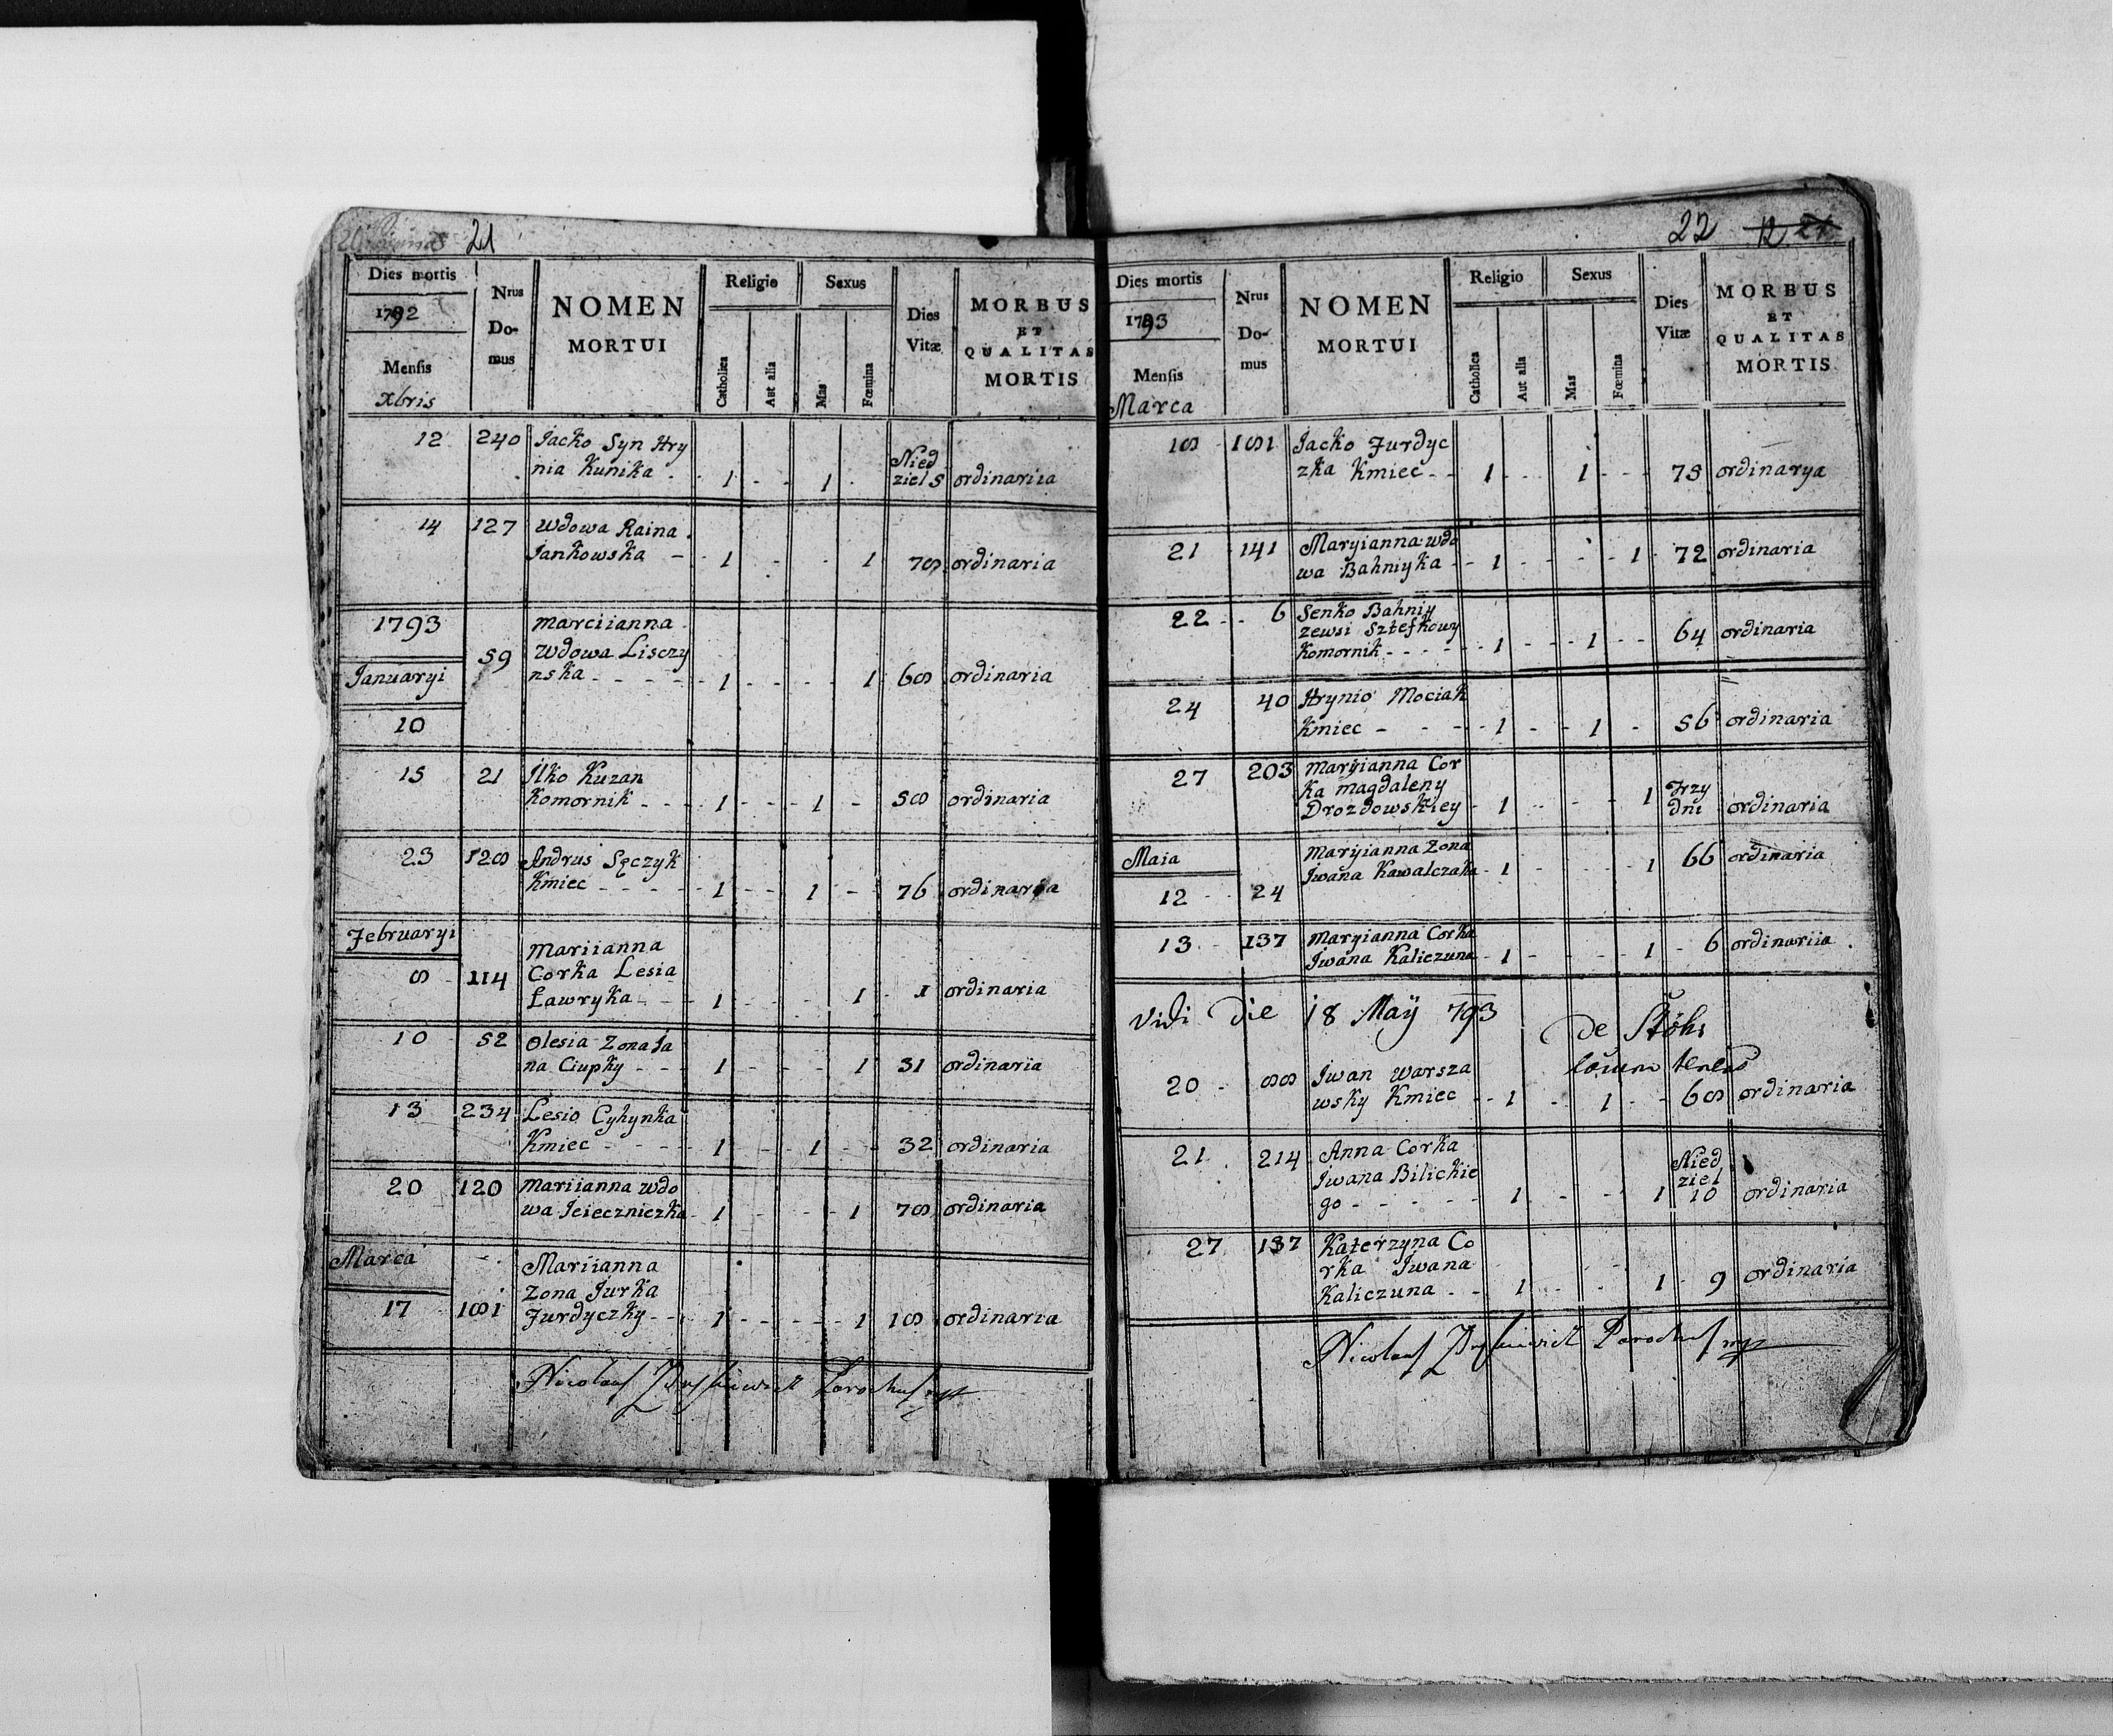 21
Dies mortis
1792
Mensis
Xbris
Nrus
Do-
mus
NOMEN
MORTUI
Religio
Catholica
Aut alia
Sexus
Mas
Fœmina
Dies
Vitæ
MORBUS
ET
QUALITAS
MORTIS
12 240 Jacko Syn Hry
nia Kunika 1 - - 1 Nied
ziel 5 ordinariia
14 127 Wdowa Raina
Jankowska - 1 - - 1 78 ordinaria
1793
Januaryi
10
59 Marciianna
Wdowa Lisczy
nska - - - - 1 - - - - 1 68 ordinaria
15 21 Ilko Kuzan
Komornik - - - 1 - - - 1 - 58 ordinaria
23 128 Andrus Sęczyk
Kmiec - - - - 1 - - 1 - 76 ordinaria
Februaryi
8 114 Mariianna
Corka Lesia
Ławryka - - 1 - - - 1 - 1 ordinaria
10 52 Olesia Zona Ja
na Ciupky - - - 1 - - - - 1 31 ordinaria
13 234 Lesio Cyhynka
Kmiec - - - - 1 - - 1 - - 32 ordinaria
20 120 Mariianna wdo
wa Jcieczniczka - 1 - - - - 1 78 ordinaria
Marca
17 181 Mariianna
Zona Jurka
Jurdyczky - - 1 - - - - - 1 18 ordinaria
Nicolaus Parochus mp
22 12 21
Dies mortis
1793
Mensis
Marca
Nrus
Do-
mus
NOMEN
MORTUI
Religio
Catholica
Aut alia
Sexus
Mas
Fœmina
Dies
Vitæ
MORBUS
ET
QUALITAS
MORTIS
18 181 Jacko Jurdyc
zka Kmiec - - 1 - - - 1 - - - 75 ordinarya
21 141 Maryianna wdo
wa Bahniyka - - 1 - - - - - 1 72 ordinaria
22 6 Senko Bahniy
zewsi Sztefkowy
Komornik - - - - - 1 - - - 1 - - 64 ordinaria
24 40 Hrynio Mociak
Kmiec - - - - 1 - - 1 - 56 ordinaria
27 203 Maryianna Cor
ka Magdaleny
Drozdowskiey - 1 - - - - 1 Trzy
dni ordinaria
Maia
12 24 Maryianna Zona
Jwana Kawalczaka - 1 - - - - 1 66 ordinaria
13 137 Maryianna Corka
Jwana Kaliczuna - 1 - - - - 1 - 6 ordinariia
Vidi Die 18 Maÿ 793
De Stöhr
20 88 Jwan Warsza
wsky Kmiec - - 1 - 1 - - 68 ordinaria
21 214 Anna Corka
Jwana Bilickie
go - - - - - 1 - - - 1 Nied
ziel
10 ordinaria
27 137 Katerzyna Co
rka Jwana
Kaliczuna - - 1 - - - 1 - 9 ordinaria
Nicolaus Parochus mp